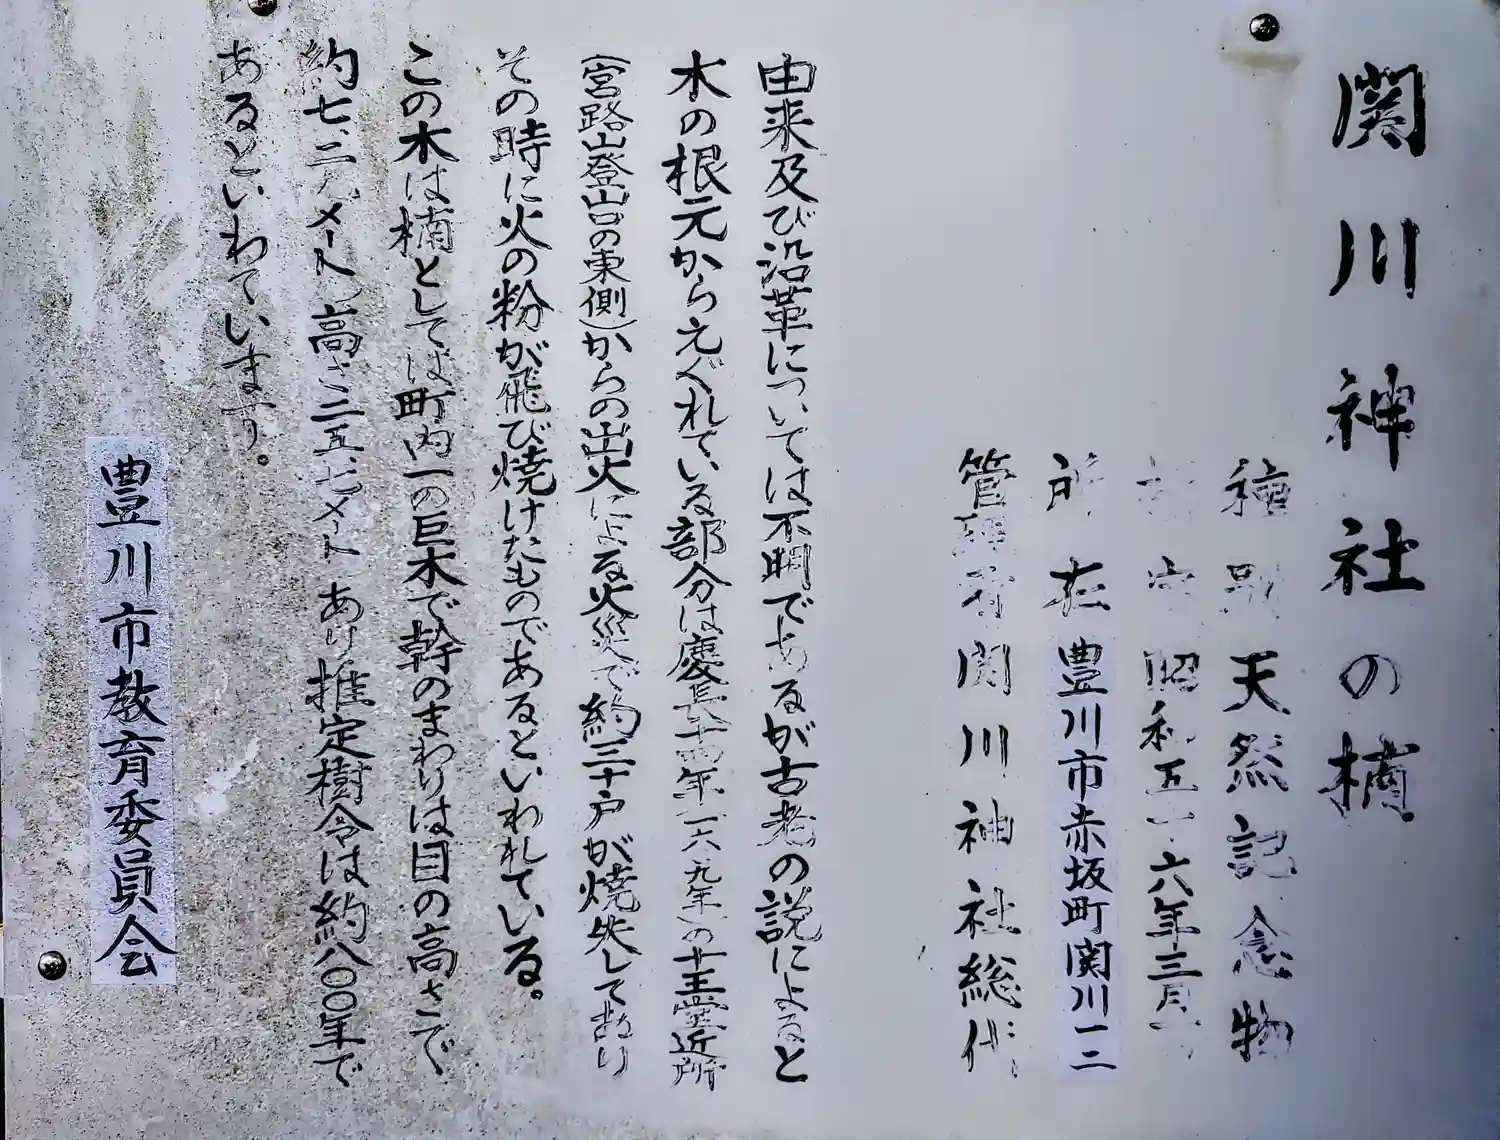 関川神社の楠
種別 天然記念物
指定 昭和五一・六年三月
所在 豊川市赤坂町関川一二
管理者 関川神社総代
由来及び沿革については不明であるが古老の説によると
木の根元からえぐれている部分は慶長十四年(一六〇九年)の十王堂近所
(宮路山登山口の東側)からの出火による火災で約三十戸が焼失しており
その時に火の粉が飛び焼けたものであるといわれている。
この木は楠としては町内一の巨木で幹のまわりは目の高さで
約七、二 メートル 高さ二五 メートル あり推定樹令は約八〇〇年で
あるといわれています。
豊川市教育委員会